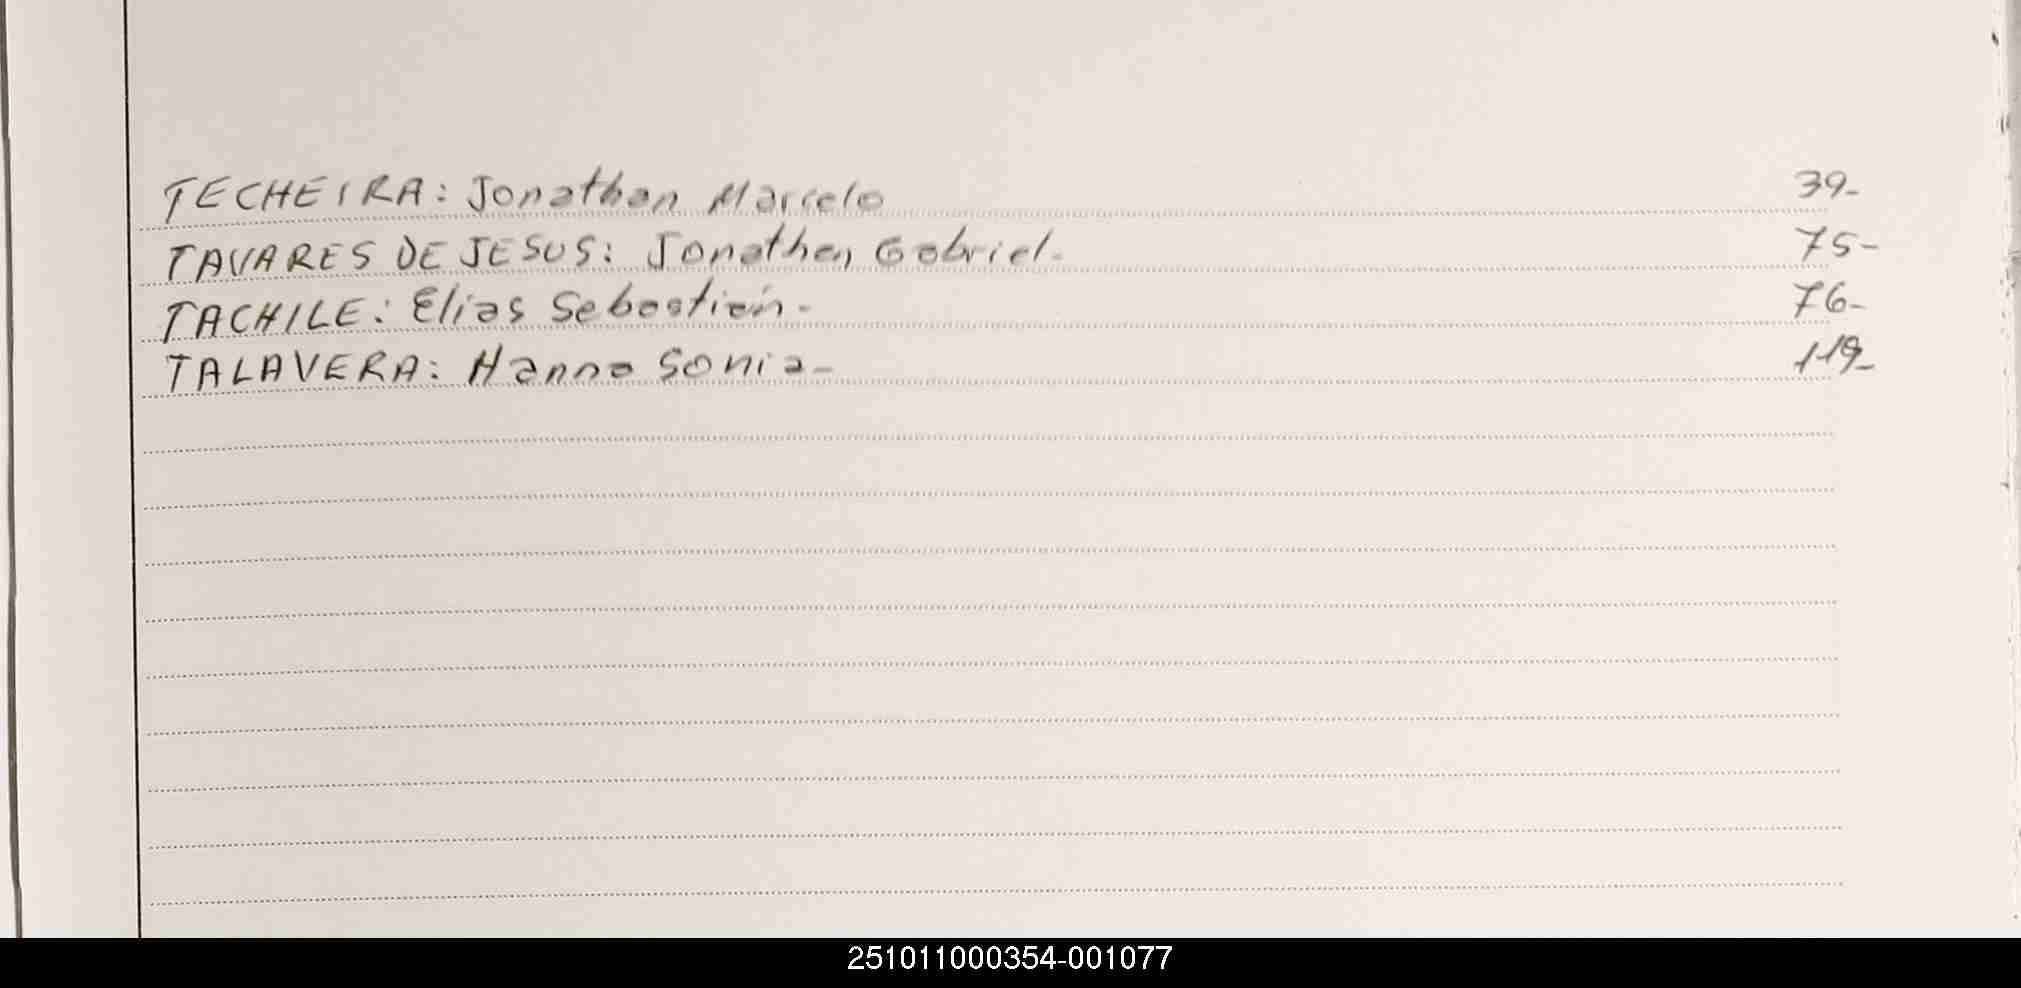 TECHEIRA: Jonathan Marcelo 39-
TAVARES DE JESUS: Jonathan Gabriel- 75-
TACHILE: Elias Sebastián- 76-
TALAVERA: Hanna Sonia- 119-
251011000354-001077